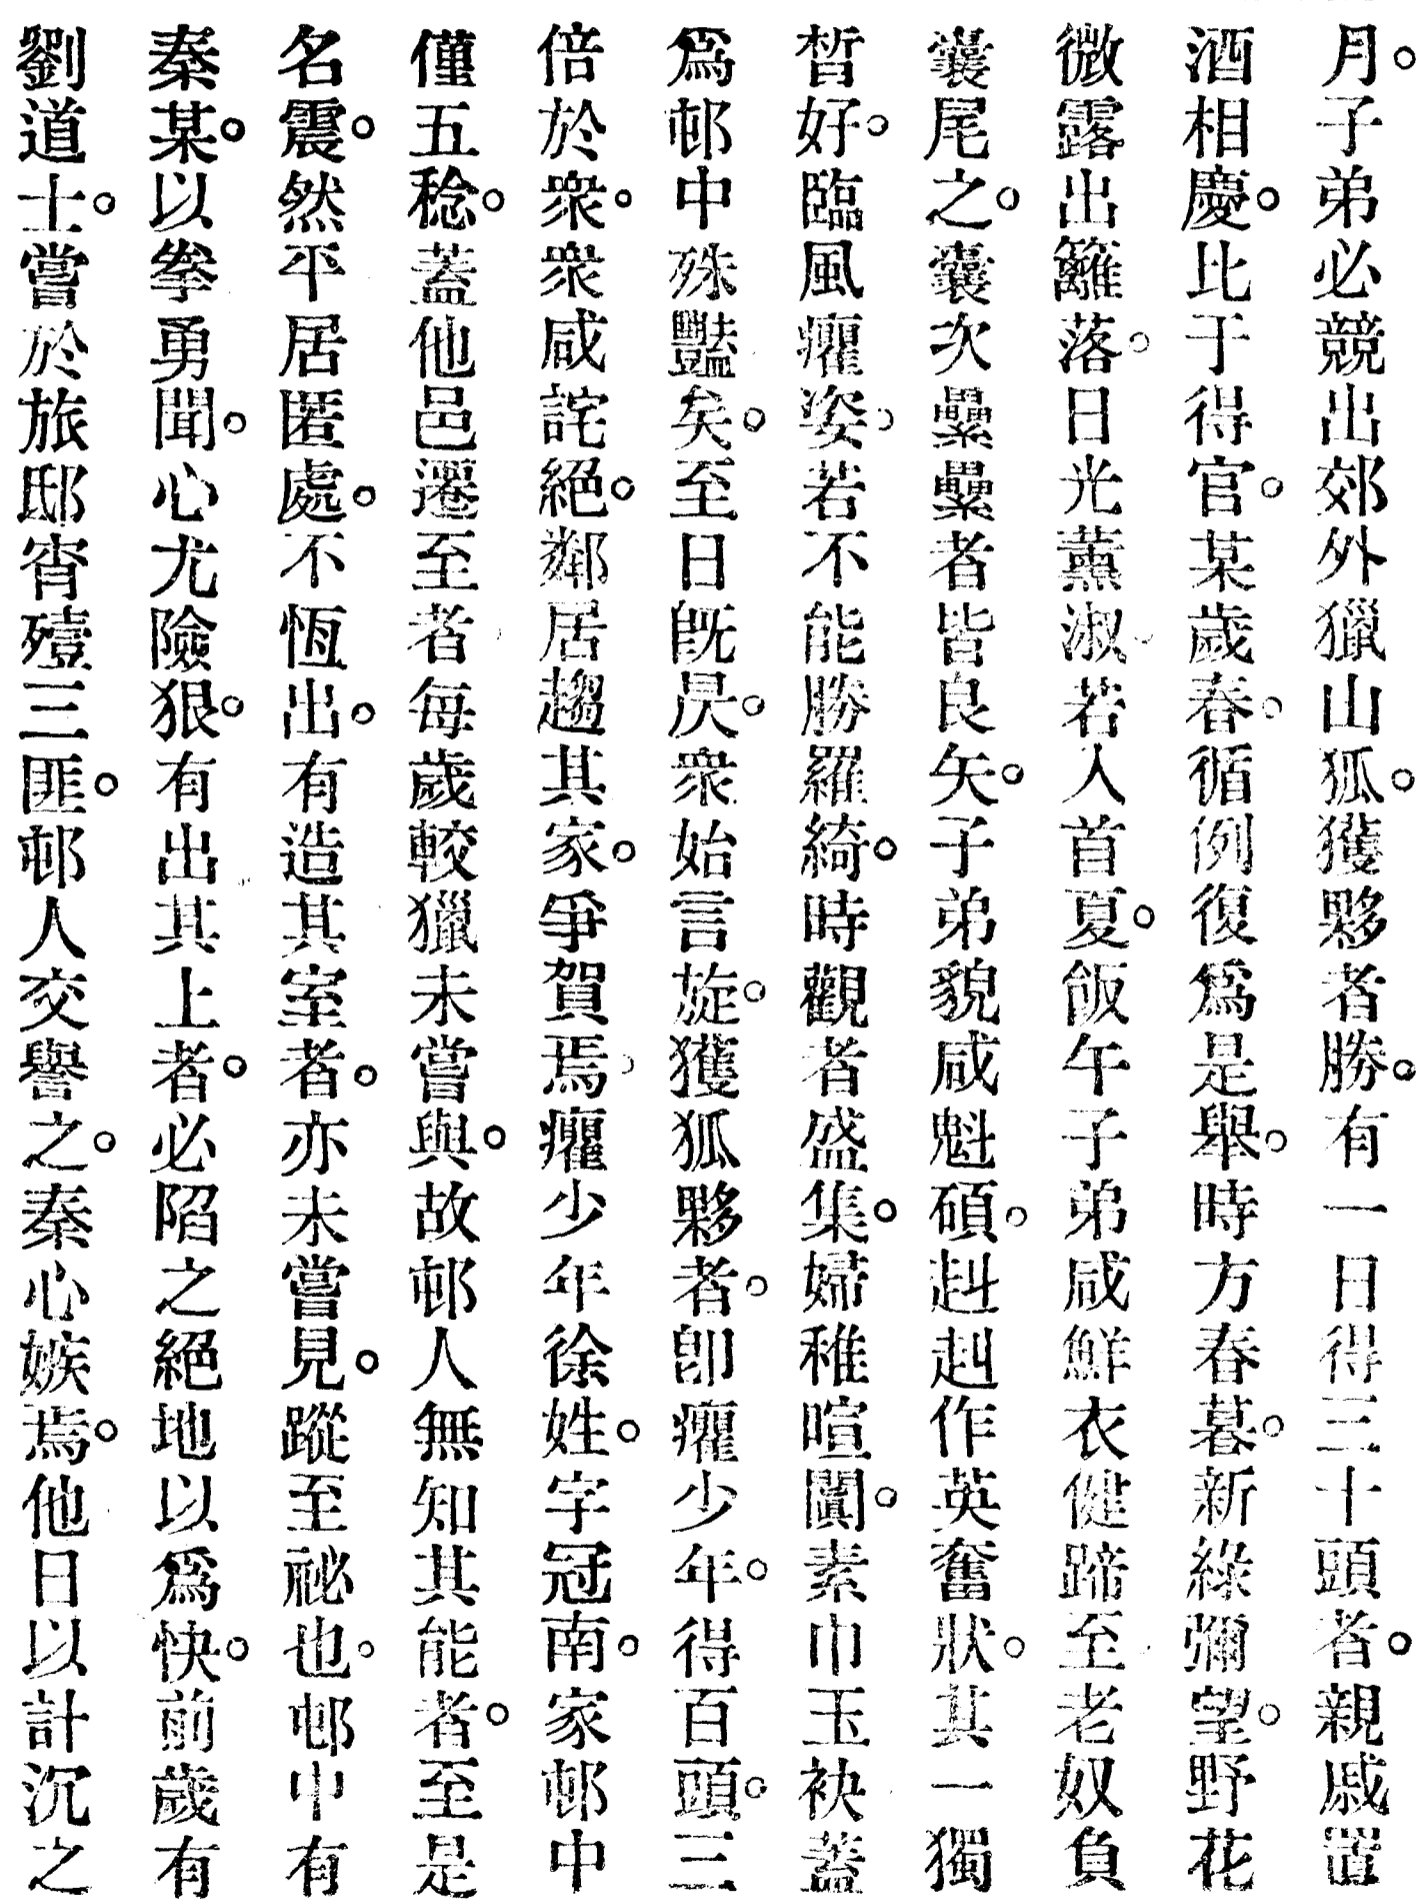 月。子弟必競出郊外獵山狐。獲夥者勝。有一日得三十頭者。親戚置
酒相慶。比于得官。某歲春。循例復爲是舉。時方春暮。新綠彌望。野花
微露出籬落。日光薰淑。若人首夏。飯午子弟咸鮮衣健蹄至老奴負
囊尾之。囊次纍纍者皆良矢。子弟貌咸魁碩。赳赳作英奮狀。其一獨
皙好。臨風癯姿。若不能勝羅綺。時觀者盛集。婦稚喧闐。素巾玉袂蓋
爲邨中殊豔矣。至日既昃。衆始言旋。獲狐夥者。卽癯少年。得百頭。三
倍於衆。衆咸詫絕。鄰居趨其家。爭賀焉。癯少年徐姓。字冠南。家邨中
僅五稔。蓋他邑遷至者每歲較獵未嘗與。故邨人無知其能者。至是
名震。然平居匿處。不恆出。有造其室者。亦未嘗見。蹤至祕也。邨中有
秦某。以拳勇聞。心尤險狠。有出其上者。必陷之絕地以爲快。前歲有
劉道士。嘗於旅邸宵殪三匪。邨人交譽之。秦心嫉焉。他日以計沉之